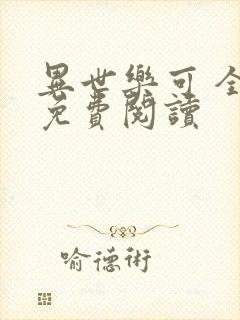 異世樂可 全
免費閱讀
喻德術